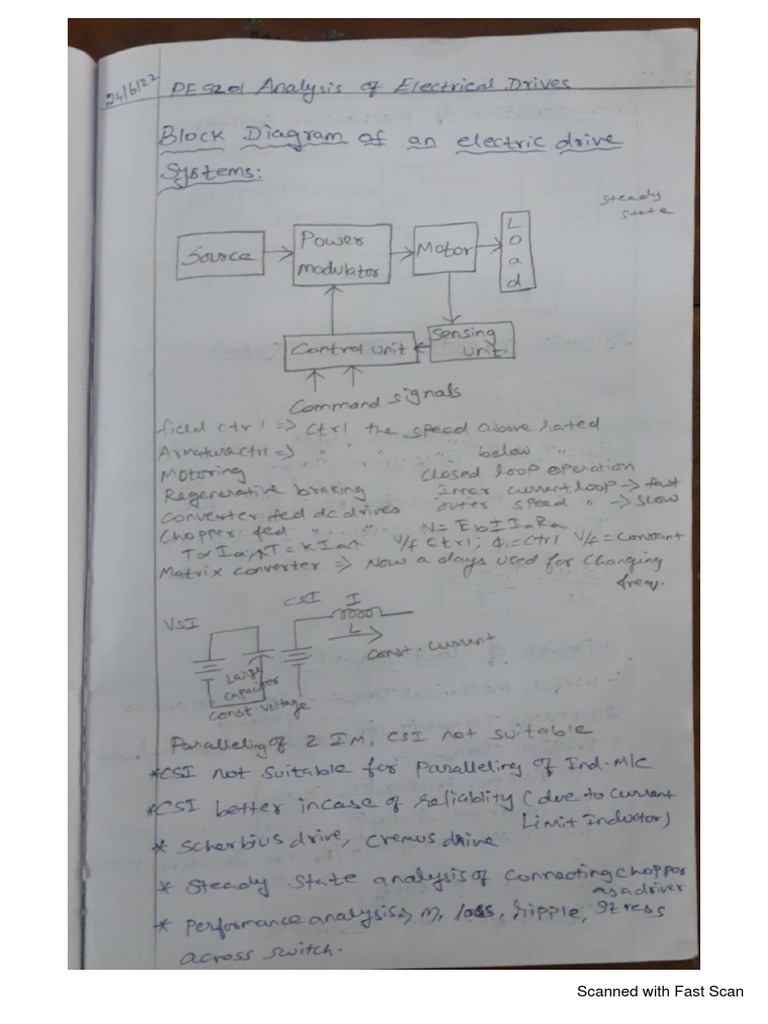 24/6/22
PE5201 Analysis of Electrical Drives
Block Diagram of an electric drive
Systems:
steady
state
Source
Power
modulator
Motor
Load
Control unit
Sensing
unit
Command signals
field ctrl => ctrl the speed above rated
Armature ctrl => " " " " below "
Motoring
Closed loop operation
Regenerative braking
Inner current loop -> fast
Converter fed dc drives
outer speed " -> slow
Chopper fed " "
N = Eb± IaRa
T∝Ia; ↑T = KIa↑
V/f ctrl; Φ = ctrl V/f = constant
Matrix converter => Now a days used for changing
freq.
VSI
CSI
I
L
const. current
Large
capacitor
const. voltage
Paralleling of 2 IM, CSI not suitable
*CSI not suitable for Paralleling of Ind. M/C
*CSI better incase of reliablity (due to current
Limit Inductor)
* Scherbius drive, Cremus drive
* Steady state analysis of connecting chopper
as a driver
* performance analysis => η, loss, ripple, stress
across switch.
Scanned with Fast Scan